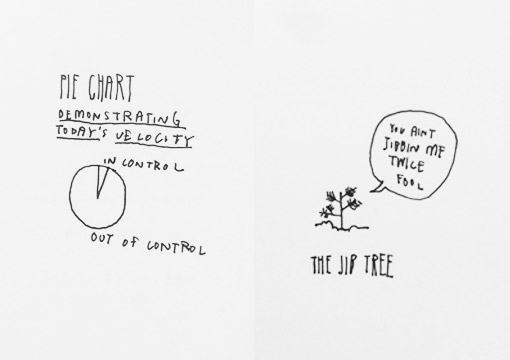 PIE CHART
DEMONSTRATING
TODAY'S VELOCITY
IN CONTROL
OUT OF CONTROL
YOU AINT
JIBBIN ME
TWICE
FOOL
THE JIB TREE